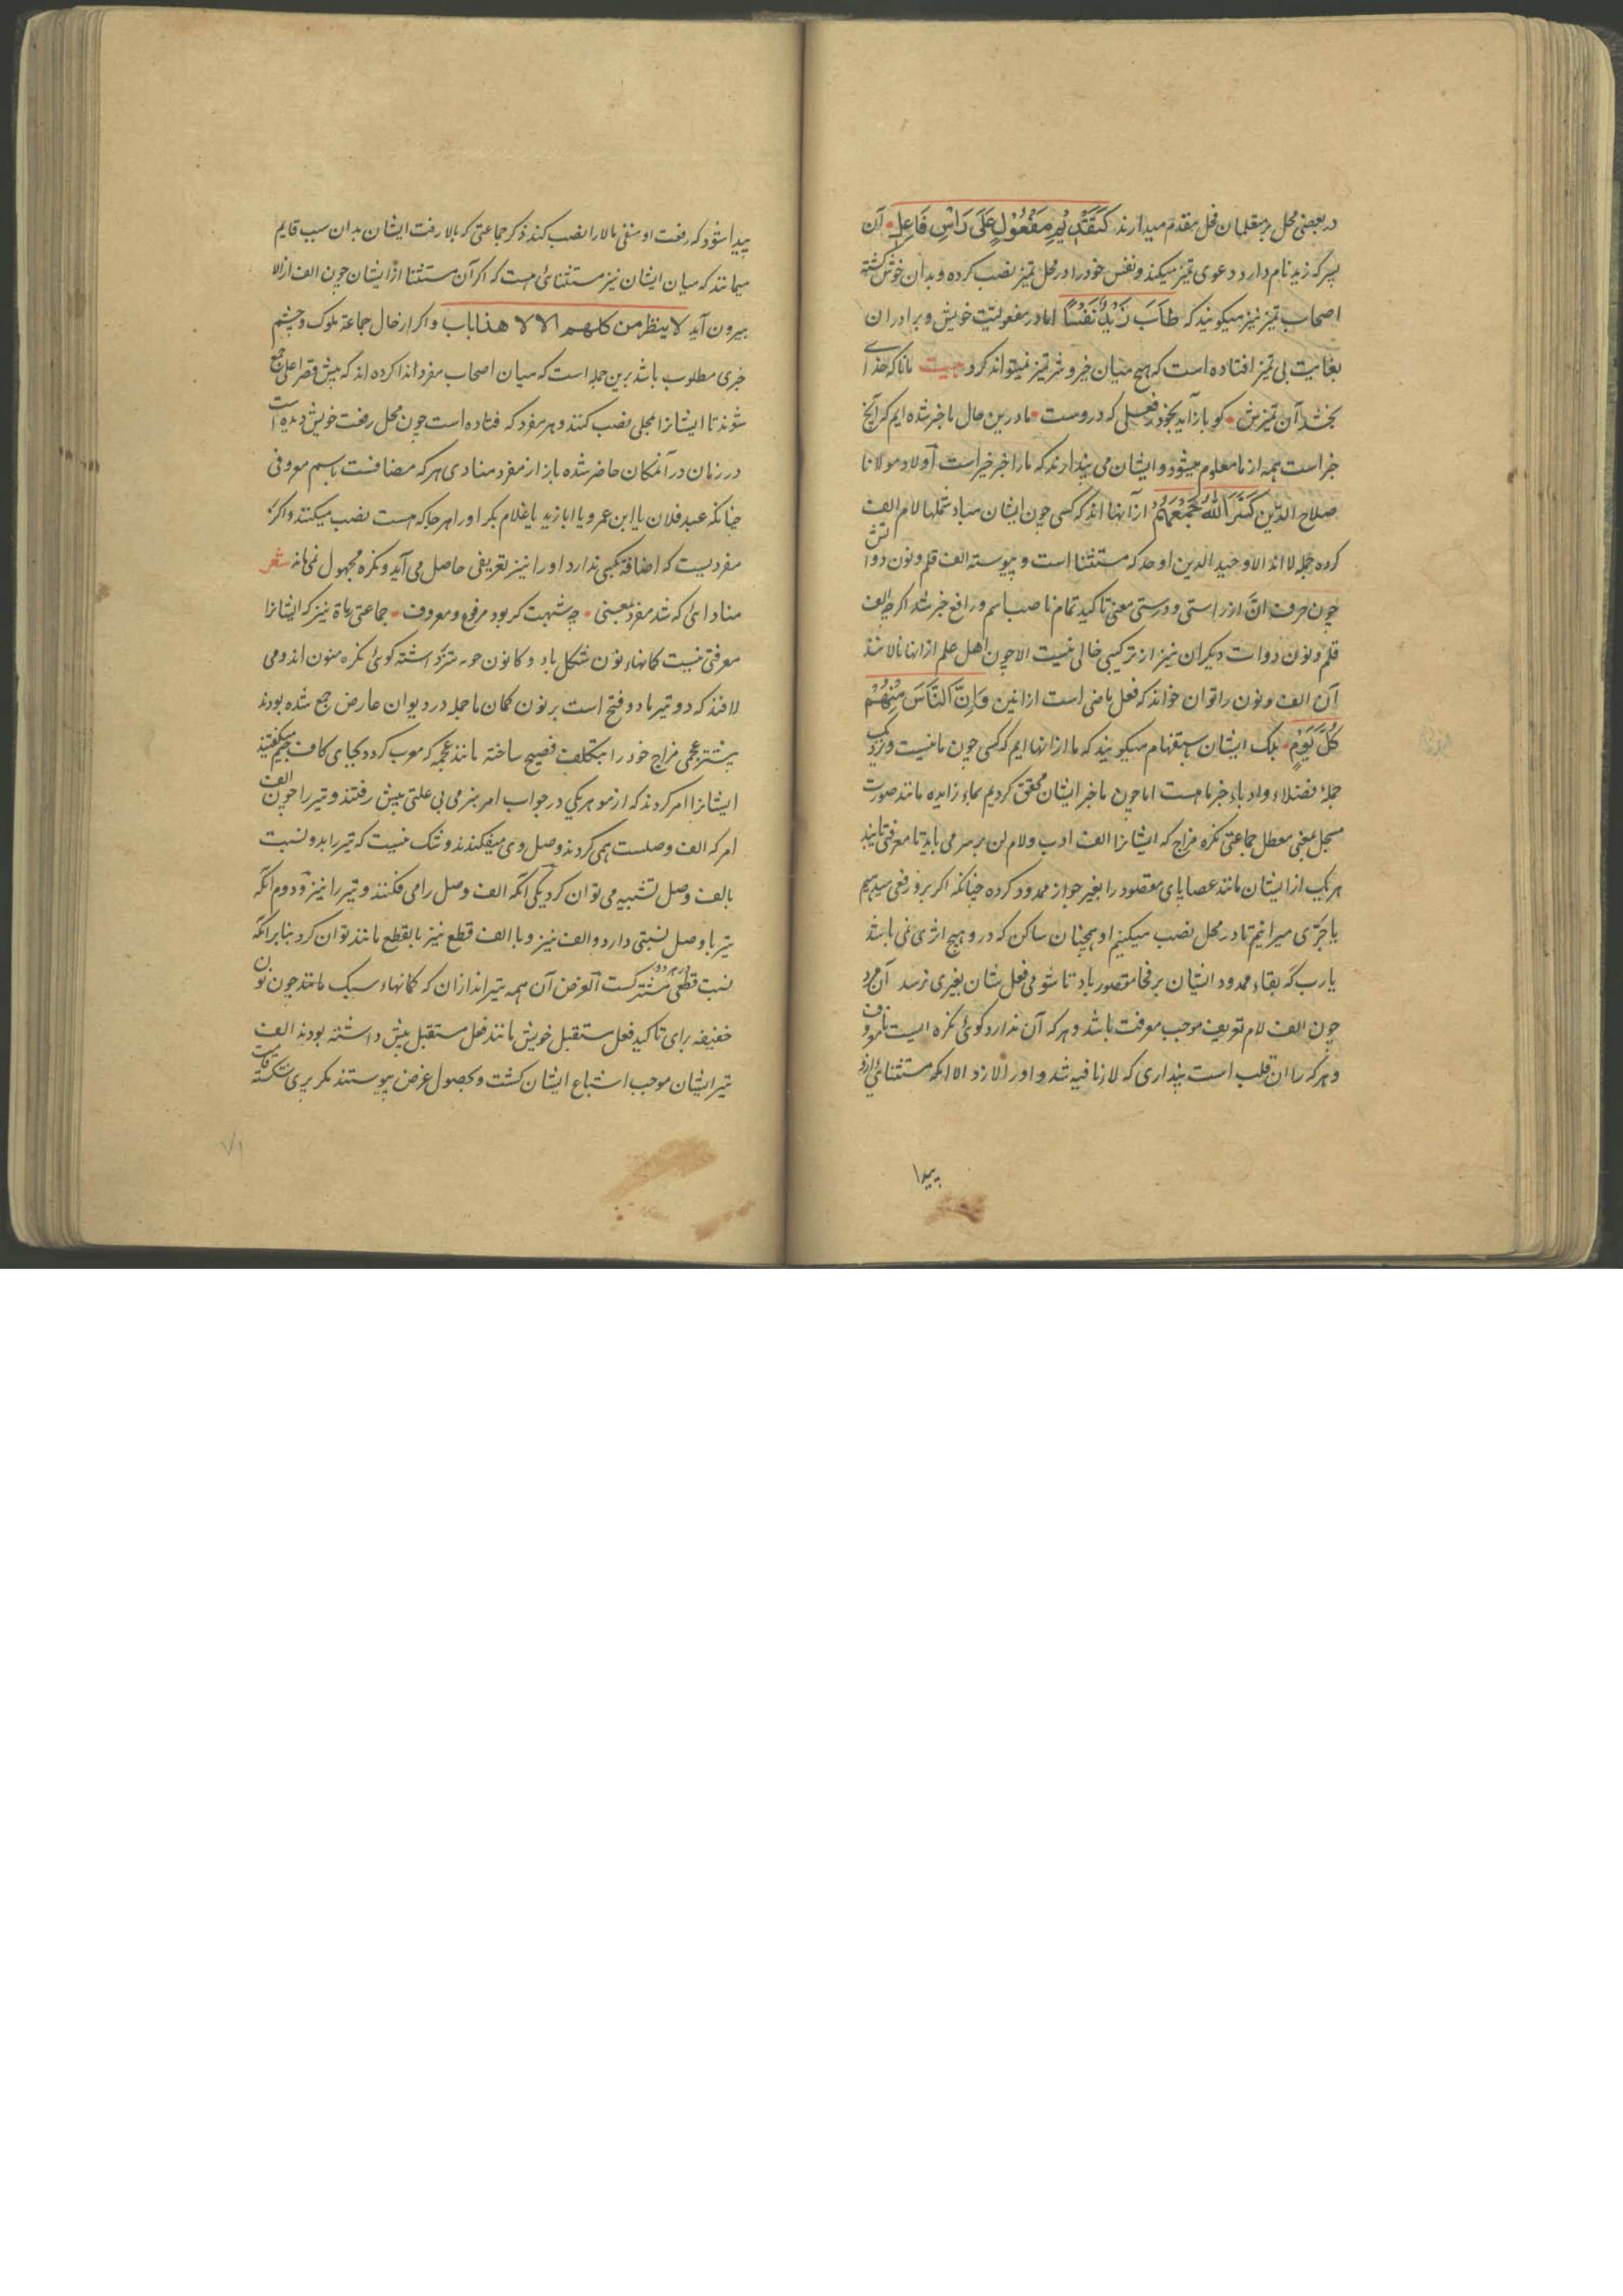 در بعضی محل بر مقلمان فحل مقدم میدارند کَتَقَدُّیْمِ مَفْعُوْلٍ عَلَی رَاْسِ فَاعِلِ آن
پسر که زید نام دارد دعوی تمیز میکند و نفس خود را در محل تمیز نصب کرده و بدان خوش گشته
اصحاب تمیز نیز میکویند که طَابَ زَیْدٌ نَفْسًا اما در مفعولیت خویش و برادران
بغایت بی تمیز افتاده است که هیچ میان خیر و شر تمیز نمیتواند کرد بیت مانا که خدای
بخشد آن تمیزش کو باز آید بخود فعیلی که دروست ما درین حال باخبر شده ایم کر آنچ
خبر است همه از ما معلوم میشود و ایشان می پندارند که ما را خبر خیر است اولاد مولانا
صلاح الدین کَسَّرَ اللّٰهُ جَمْعَهُمْ از آنها اند که کسی چون ایشان مباد شکلها لام الف
کرده جمله لا اند الا وحید الدین اوحد که مستثنا است و پیوسته الف قلم و نون دواتش
چون حرف انّ از راستی و درستی معنی تاکید تمام ناصب اسم و رافع خبر شد اکرچه الف
قلم و نون دوات دیکران نیز از ترکیبی خالی نیست الا چون اهل علم ازانها نالانند
آن الف و نون را توان خواند که فعل ماضی است از انین وَاِنَّ النَّاسَ مِنْهُمْ
کُلَّ یَوْمٍ بلک ایشان باستفهام میکویند که ما ازانها ایم که کسی چون ما نیست و نزدیک
جمله فضلاء و ادباء خبر ما هست اما چون ما خبر ایشان محقق کردیم بماء زایده مانند صورت
مسجل بمعنی معطل جماعتی نکره مزاج که ایشانرا الف ادب و لام لن بر سر می باید تا معرفتی یابند
هر یک از ایشان مانند عصایای مقصود را بغیر جواز ممدود کرده چنانکه اکر بر و رفعی میدهیم
یا جرّی میرانیم تا در محل نصب میکنیم او همچنان ساکن که درو هیچ اثری نمی باشد
یارب که بقاء ممدود ایشان بر فحا مقصور باد تا شومی فعل شان بغیری نرسد آن مرد
چون الف لام تعریف موجب معرفت باشد و هر که آن ندارد کوئی نکره ایست نامعروف
و هر که را ان قلب است پنداری که لا زنافیه شد و او را لا زد الا انکه مستثنایی ازو
پیدا
پیدا شود که رفعت او منفی بالا را نصب کند ذکر جماعتی که بالا رفت ایشان بدان سبب قایم
میمانند که میان ایشان نیز مستثنائی هست که اکر آن مستثنا از ایشان چون الف از الا
بیرون آید لا ینظر من کلهم الا لا هذا باب و اکر از خال جماعة ملوک و چشم
خبری مطلوب باشد برین جمله است که میان اصحاب مفرد اندا کرده اند که پیش قصر اعلی جمع
شوند تا ایشانرا بمحلی نصب کنند و هر مفرد که فتاده است چون محل رفعت خویش دیده است
در زمان در آنمکان حاضر شده باز از مفرد منادی هر که مضافست باسم معروفی
چنانکه عبد فلان یا ابن عمرو یا ابا زید یا غلام بکر او را هر جا که هست نصب میکنند و اکر
مفردیست که اضافة بکسی ندارد او را نیز تعریفی حاصل می آید و نکره مجهول نمی ماند شعر
منادائی که شد مفرد بمعنی چه شبهت کر بود مرفوع و معروف جماعتی رماة نیز که ایشانرا
معرفتی نیست کمانهاء نون شکل باد و کانون حور متزد اشته کوئی نکره منون اند و می
لافند که دو تیر ماد و فتح است بر نون کمان ما جمله در دیوان عارض جمع شده بودند
بیشتر عجمی مزاج خود را بتکلف فصیح ساخته مانند عجمه که معرب کردد بجای کاف جیم میکفتند
ایشانرا امر کردند که از مو هر یکی در جواب امر بنرمی بی علتی پیش رفتند و تیر را چون الف
امر که الف وصلست همی کردند وصل وی میفکندند و شک نیست که تیر را بدو نسبت
بالف وصل تشبیه می توان کرد یکی آنکه الف وصل را می فکنند و تیر را نیز و دوم آنکه
تیر با وصل نسبتی دارد و الف نیز و با الف قطع نیز بالقطع مانند توان کرد بنابر آنکه
نسبت قطعی در هر دو مشترکست الغرض آن همه تیراندازان که کمانهاء سبک مانند چون نون
خفیفه برای تاکید فعل مستقبل خویش مانند فعل مستقبل پیش داشته بودند الف
تیر ایشان موجب اشباع ایشان کشت و بحصول غرض پیوستند مکر پری شکسته قامت
۷۱